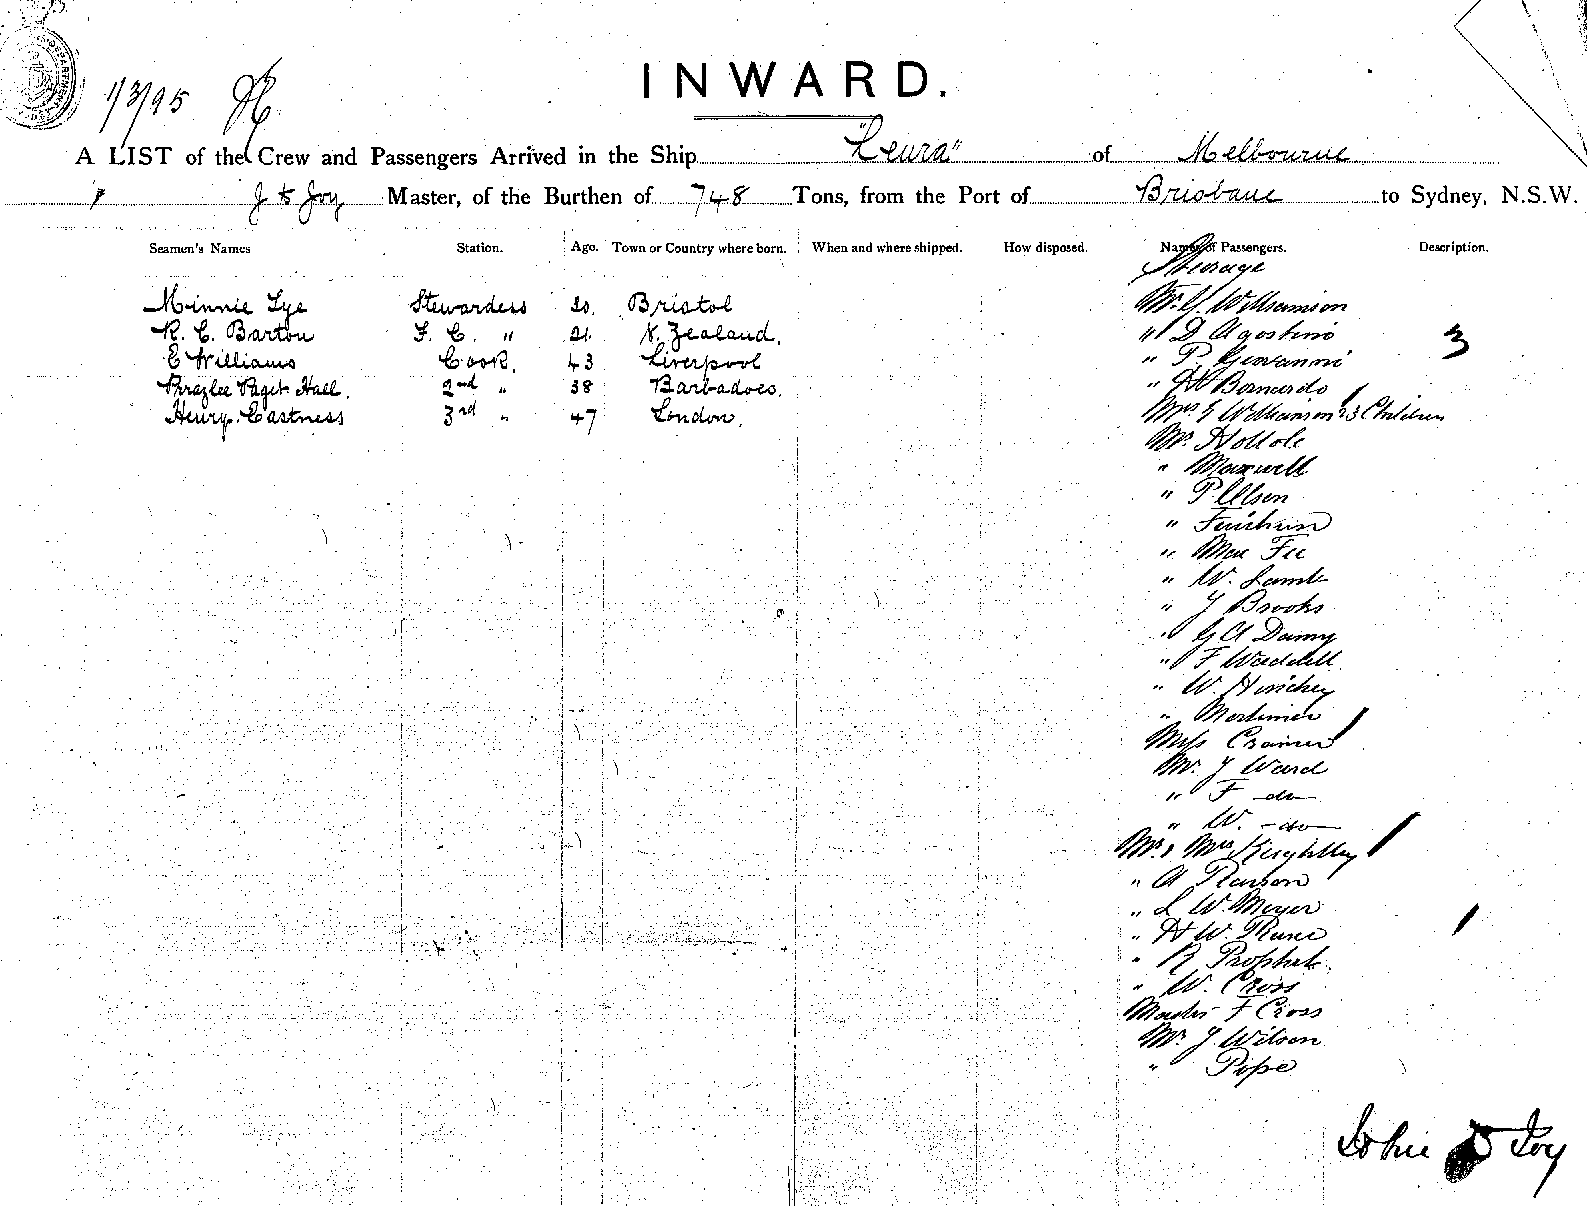 INWARD.
1/3/95
A LIST of the Crew and Passengers Arrived in the Ship "Leura" of Melbourne
J Joy Master, of the Burthen of 748 Tons, from the Port of Brisbane to Sydney, N.S.W.
Seamen's Names Station. Age. Town or Country where born. When and where shipped. How disposed. Names of Passengers. Description.
Steerage
Minnie Lye Stewardess 20. Bristol Mr. Williamson
R. C. Barton F. C. " 21. N. Zealand. " D Agostino 3
E Williams Cook. 43 Liverpool " P. Giovanni
Paget Hall. 2nd " 38 Barbadoes. " Bernardo
Henry Eastness 3rd " 47 London. Mrs Williamson 3 Children
Mr.
" Maxwell
" P Olsen
"
" Mac Fee
" W. Lamb
" J Brooks
" G A
" F Waddell
" W. Hinchey
" Mortimer
Miss Cramer
Mr. J Ward
" F -do-
" W. -do-
Mr. Mrs Keightley
" A Pearson
" L W. Meyer
" H W.
" R Prophet
" W. Cross
Master F Cross
Mr. J Wilson
" Pope
John Joy